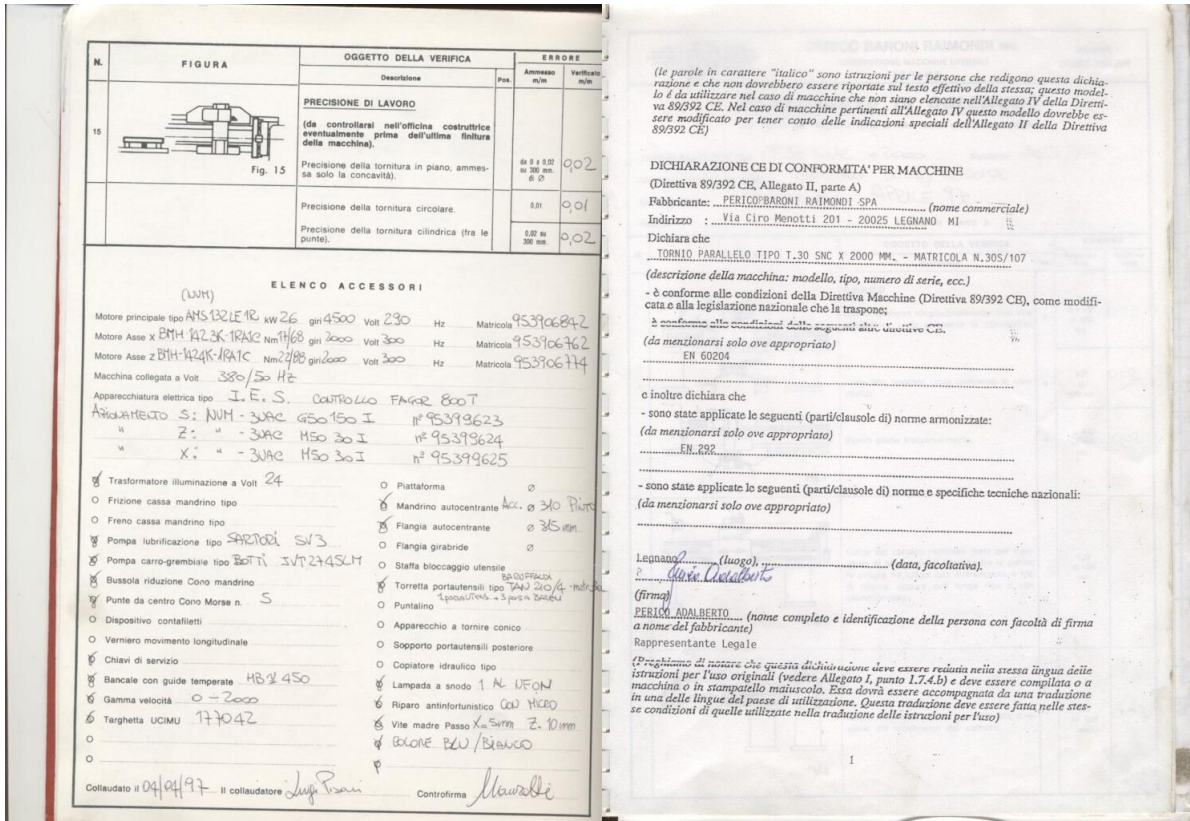 N.
FIGURA
OGGETTO DELLA VERIFICA
ERRORE
Descrizione
Pos.
Ammesso m/m
Verificato m/m
15
Fig. 15
PRECISIONE DI LAVORO
(da controllarsi nell'officina costruttrice
eventualmente prima dell'ultima finitura
della macchina).
Precisione della tornitura in piano, ammes-
sa solo la concavità).
da 0 a 0,02
su 300 mm.
0,02
Precisione della tornitura circolare.
0,01
0,01
Precisione della tornitura cilindrica (fra le
punte).
0,02 su
300 mm.
0,02
ELENCO ACCESSORI
(NUM)
Motore principale tipo AMS 132 LE 1R kW 26 giri 4500 Volt 290 Hz Matricola 953906842
Motore Asse X BMH-1423K-1RA1C Nm 17/68 giri 3000 Volt 300 Hz Matricola 953906762
Motore Asse Z BMH-1424K-1RA1C Nm 22/88 giri 2000 Volt 300 Hz Matricola 953906774
Macchina collegata a Volt 380/50 Hz
Apparecchiatura elettrica tipo I.E.S. CONTROLLO FAGOR 800T
AZIONAMENTO S: NUM - 3UAC G50 150 I n° 95399623
" Z: " - 3UAC M50 30 I n° 95399624
" X: " - 3UAC M50 30 I n° 95399625
Trasformatore illuminazione a Volt 24
Frizione cassa mandrino tipo
Freno cassa mandrino tipo
Pompa lubrificazione tipo SARTORI SV3
Pompa carro-grembiale tipo BOTTI
Bussola riduzione Cono mandrino
Punte da centro Cono Morse n. 5
Dispositivo contafiletti
Verniero movimento longitudinale
Chiavi di servizio
Bancale con guide temperate HB 450
Gamma velocità 0-2000
Targhetta UCIMU 177042
Piattaforma ø
Mandrino autocentrante Acc. ø 310 PINTO
Flangia autocentrante ø 315 mm
Flangia girabride ø
Staffa bloccaggio utensile
BARUFFALDI
Torretta portautensili tipo TAN 210/4
Puntalino
Apparecchio a tornire conico
Sopporto portautensili posteriore
Copiatore idraulico tipo
Lampada a snodo 1 AL NEON
Riparo antinfortunistico CON MICRO
Vite madre Passo X=5mm Z. 10 mm
COLORE BLU/BIANCO
Collaudato il 04/04/97 Il collaudatore Luigi Pisoni Controfirma
(le parole in carattere "italico" sono istruzioni per le persone che redigono questa dichia-
razione e che non dovrebbero essere riportate sul testo effettivo della stessa; questo model-
lo é da utilizzare nel caso di macchine che non siano elencate nell'Allegato IV della Diretti-
va 89/392 CE. Nel caso di macchine pertinenti all'Allegato IV questo modello dovrebbe es-
sere modificato per tener conto delle indicazioni speciali dell'Allegato II della Direttiva
89/392 CE)
DICHIARAZIONE CE DI CONFORMITA' PER MACCHINE
(Direttiva 89/392 CE, Allegato II, parte A)
Fabbricante: PERICO BARONI RAIMONDI SPA (nome commerciale)
Indirizzo : Via Ciro Menotti 201 - 20025 LEGNANO MI
Dichiara che
TORNIO PARALLELO TIPO T.30 SNC X 2000 MM. - MATRICOLA N.30S/107
(descrizione della macchina: modello, tipo, numero di serie, ecc.)
- è conforme alle condizioni della Direttiva Macchine (Direttiva 89/392 CE), come modifi-
cata e alla legislazione nazionale che la traspone;
è conforme alle condizioni delle seguenti altre direttive CE:
(da menzionarsi solo ove appropriato)
EN 60204
e inoltre dichiara che
- sono state applicate le seguenti (parti/clausole di) norme armonizzate:
(da menzionarsi solo ove appropriato)
EN 292
- sono state applicate le seguenti (parti/clausole di) norme e specifiche tecniche nazionali:
(da menzionarsi solo ove appropriato)
Legnano (luogo), (data, facoltativa).
Perico Adalberto
(firma)
PERICO ADALBERTO (nome completo e identificazione della persona con facoltà di firma
a nome del fabbricante)
Rappresentante Legale
(Preghiamo di notare che questa dichiarazione deve essere redatta nella stessa lingua delle
istruzioni per l'uso originali (vedere Allegato I, punto 1.7.4.b) e deve essere compilata o a
macchina o in stampatello maiuscolo. Essa dovrà essere accompagnata da una traduzione
in una delle lingue del paese di utilizzazione. Questa traduzione deve essere fatta nelle stes-
se condizioni di quelle utilizzate nella traduzione delle istruzioni per l'uso)
I